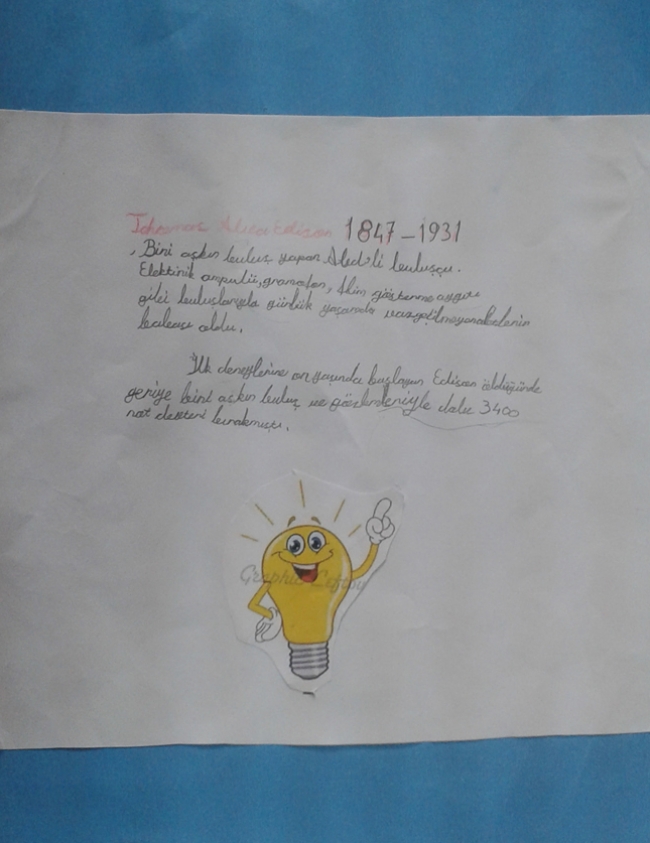 Edison 1847-1931
Bini aşkın buluş yapan Abd'li buluşçu.
Elektirik ampulü, gramofon, film gösterme aygıtı
gibi buluşlarıyla günlük yaşamda
babası oldu.
İlk deneylerine on yaşında başlayan Edison öldüğünde
geriye bini aşkın buluş ve gözlemleriyle dolu 3400
not defteri bırakmıştı.
Graphic